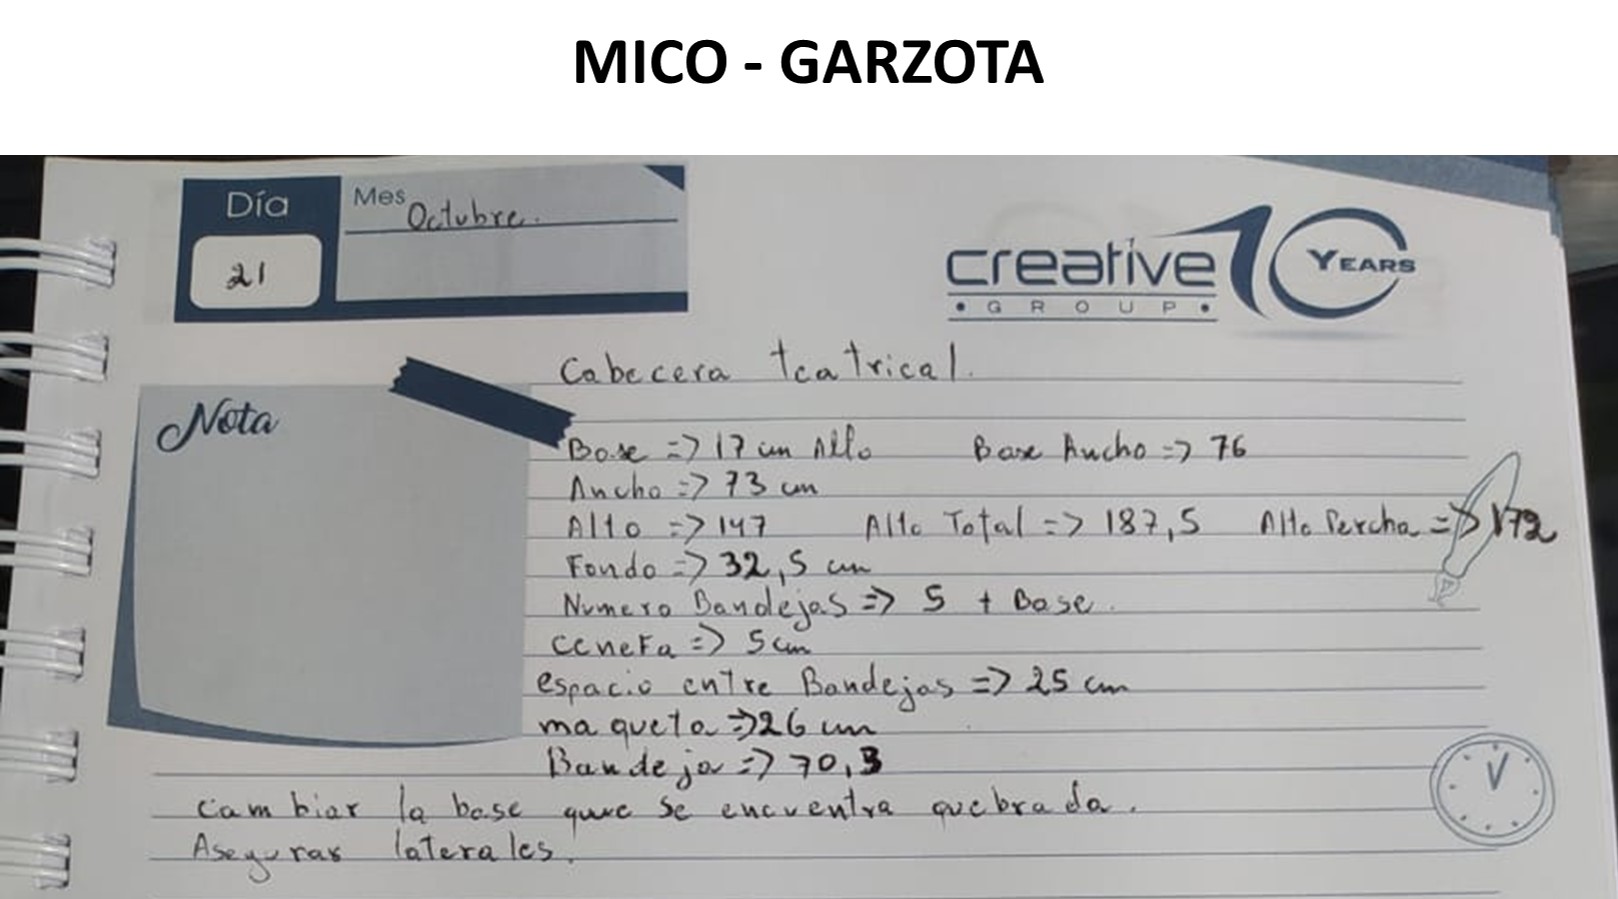 MICO - GARZOTA
Día
Mes
Octubre.
21
creative 10 YEARS
GROUP
Cabecera teatrical.
Nota
Base => 17 cm Alto Base Ancho => 76
Ancho => 73 cm
Alto => 147 Alto Total => 187,5 Alto Percha => 172
Fondo => 32,5 cm
Numero Bandejas => 5 + Base.
ceneFa => 5 cm
espacio entre Bandejas => 25 cm
maqueta => 26 cm
Bandeja => 70,3
Cambiar la base que se encuentra quebrada.
Asegurar laterales.